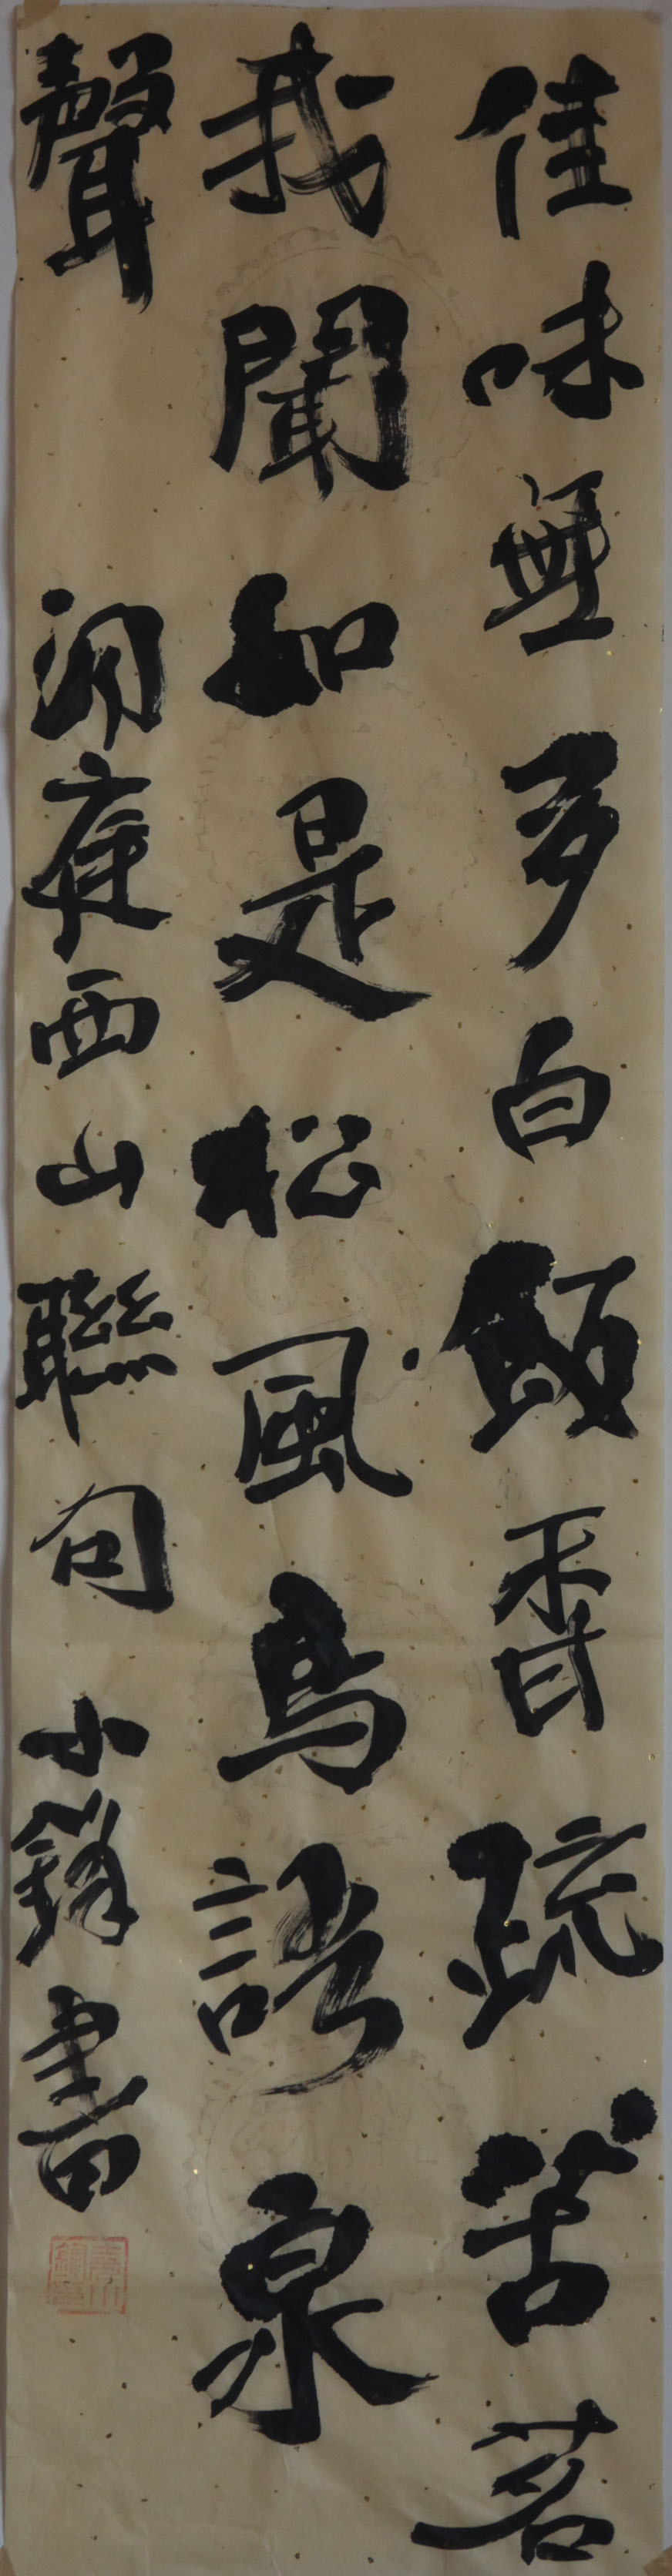 佳味無多白飯香蔬苦茗
我聞如是松風鳥語泉
聲 洞庭西山聯句 小鋒書